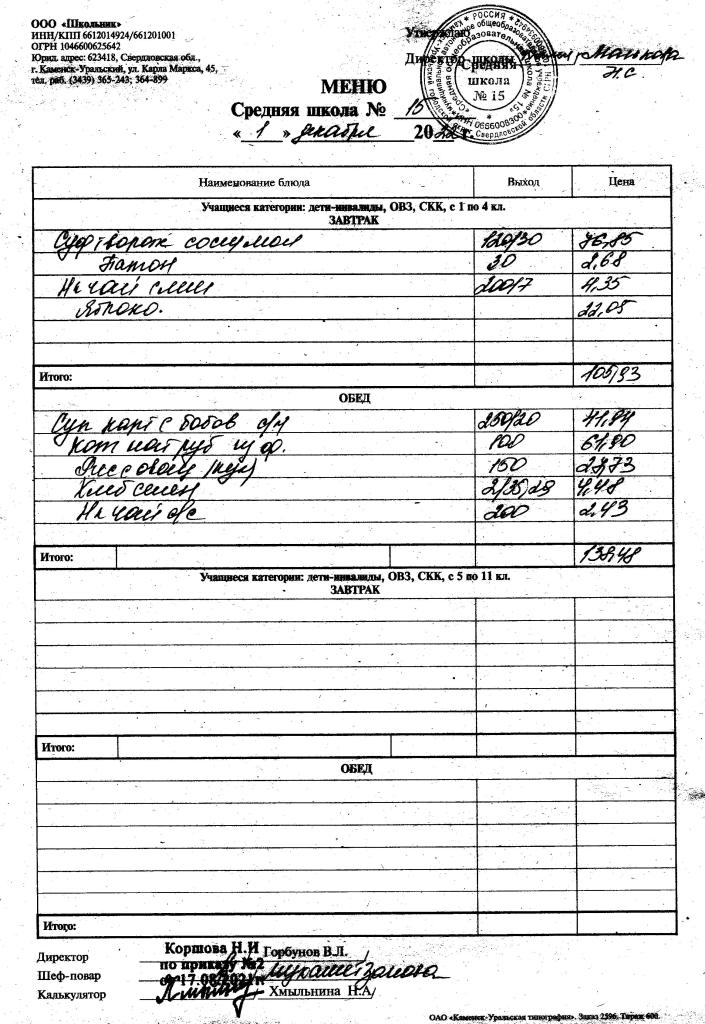 ООО «Школьник»
ИНН/КПП 6612014924/661201001
ОГРН 1046600625642
Юрид. адрес: 623418, Свердловская обл.,
г. Каменск-Уральский, ул. Карла Маркса, 45,
тел. раб. (3439) 365-243; 364-899
Утверждаю
Директор школы
Средняя школа № 15
МЕНЮ
Средняя школа № 15
« 1 » декабря 2022 г.
Наименование блюда Выход Цена
Учащиеся категории: дети-инвалиды, ОВЗ, СКК, с 1 по 4 кл.
ЗАВТРАК
120/30 76,85
Батон 30 2,68
Нп чай слим 200/7 4,35
Яблоко. 22,05
Итого: 105,93
ОБЕД
Суп карт с бобов 250/20 41,94
100 61,90
150 27,73
Хлеб 4,48
Нп чай с/с 200 2,43
Итого: 138,48
Учащиеся категории: дети-инвалиды, ОВЗ, СКК, с 5 по 11 кл.
ЗАВТРАК
Итого:
ОБЕД
Итого:
Директор Коршова Н.И Горбунов В.Л.
по приказу №2
Шеф-повар
от 17.08.2021г
Калькулятор Хмыльнина Н.А
ОАО «Каменск-Уральская типография». Заказ 2596. Тираж 600.